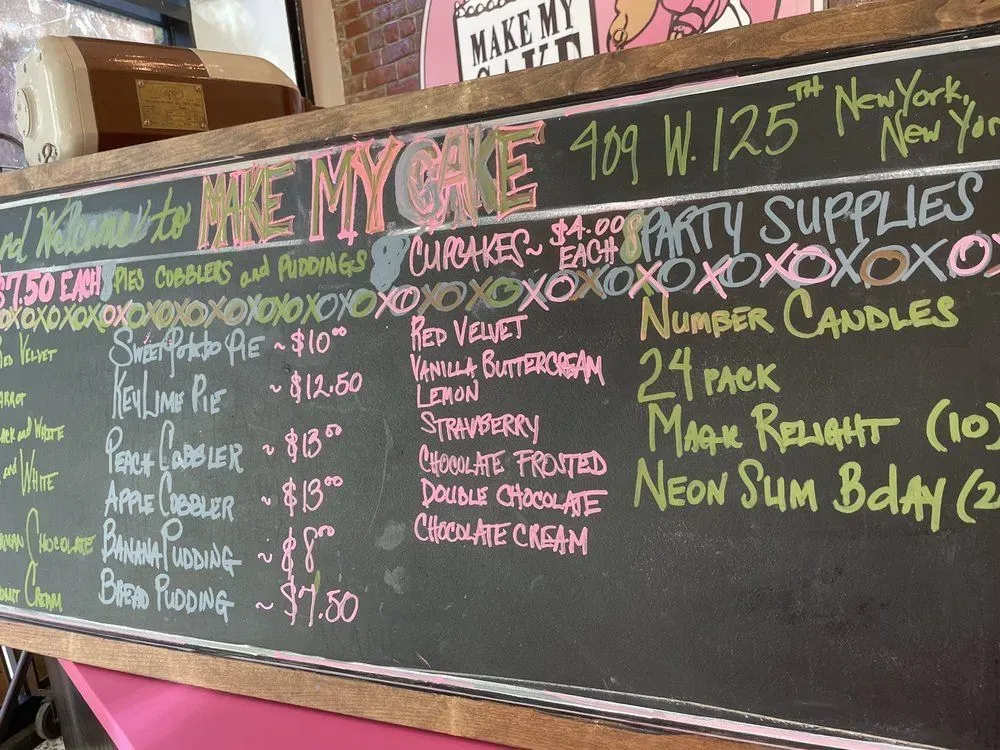 MAKE MY
CAKE
Welcome to MAKE MY CAKE 409 W. 125TH New York,
New Yor
$7.50 EACH
RED VELVET
WHITE
and WHITE
CHOCOLATE
CREAM
PIES COBBLERS and PUDDINGS
SWEET POTATO PIE ~ $10.00
KEY LIME PIE ~ $12.50
PEACH COBBLER ~ $13.00
APPLE COBBLER ~ $13.00
BANANA PUDDING ~ $8.00
BREAD PUDDING ~ $7.50
CUPCAKES ~ $4.00
EACH
RED VELVET
VANILLA BUTTERCREAM
LEMON
STRAWBERRY
CHOCOLATE FROSTED
DOUBLE CHOCOLATE
CHOCOLATE CREAM
PARTY SUPPLIES
NUMBER CANDLES
24 PACK
MAGIK RELIGHT (10)
NEON SLIM BDAY (2